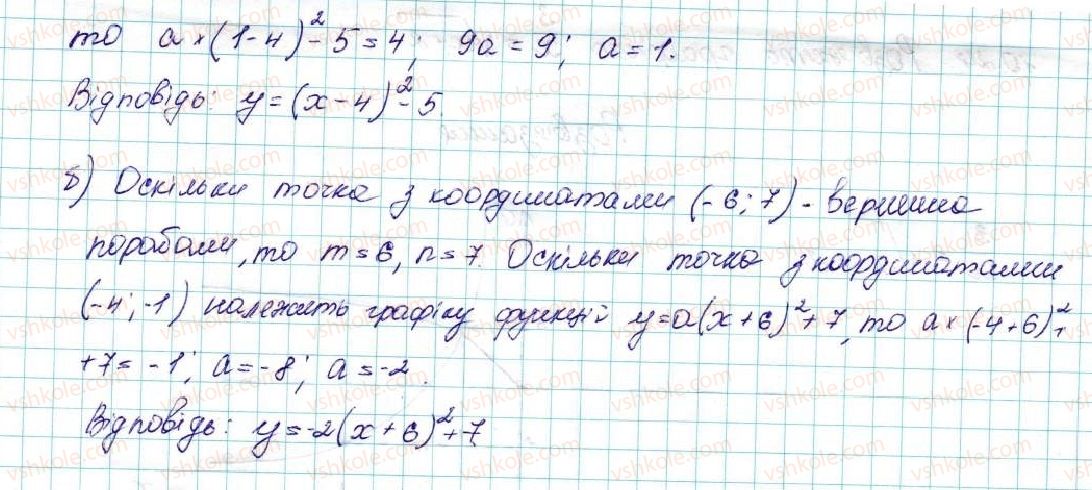 то a × (1 - 4)² - 5 = 4; 9a = 9; a = 1.
Відповідь: y = (x - 4)² - 5
б) Оскільки точка з координатами (-6; 7) - вершина
параболи, то m = 6, n = 7. Оскільки точка з координатами
(-4; -1) належить графіку функції y = a(x + 6)² + 7, то a × (-4 + 6)² +
+ 7 = -1; a = -8; a = -2.
Відповідь: y = -2(x + 6)² + 7